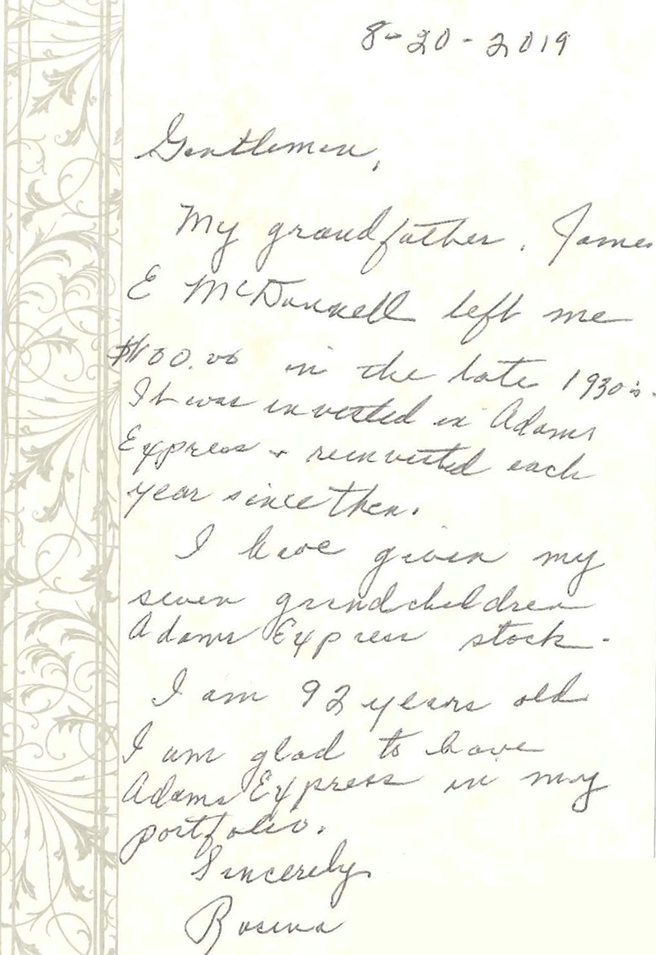 8-20-2019
Gentlemen,
My grandfather. James
E McDonnell left me
$100.00 in the late 1930's.
It was invested in Adams
Express + reinvested each
year since then.
I have given my
seven grandchildren
Adams Express stock.
I am 92 years old
I am glad to have
Adams Express in my
portfolio.
Sincerely
Rosina